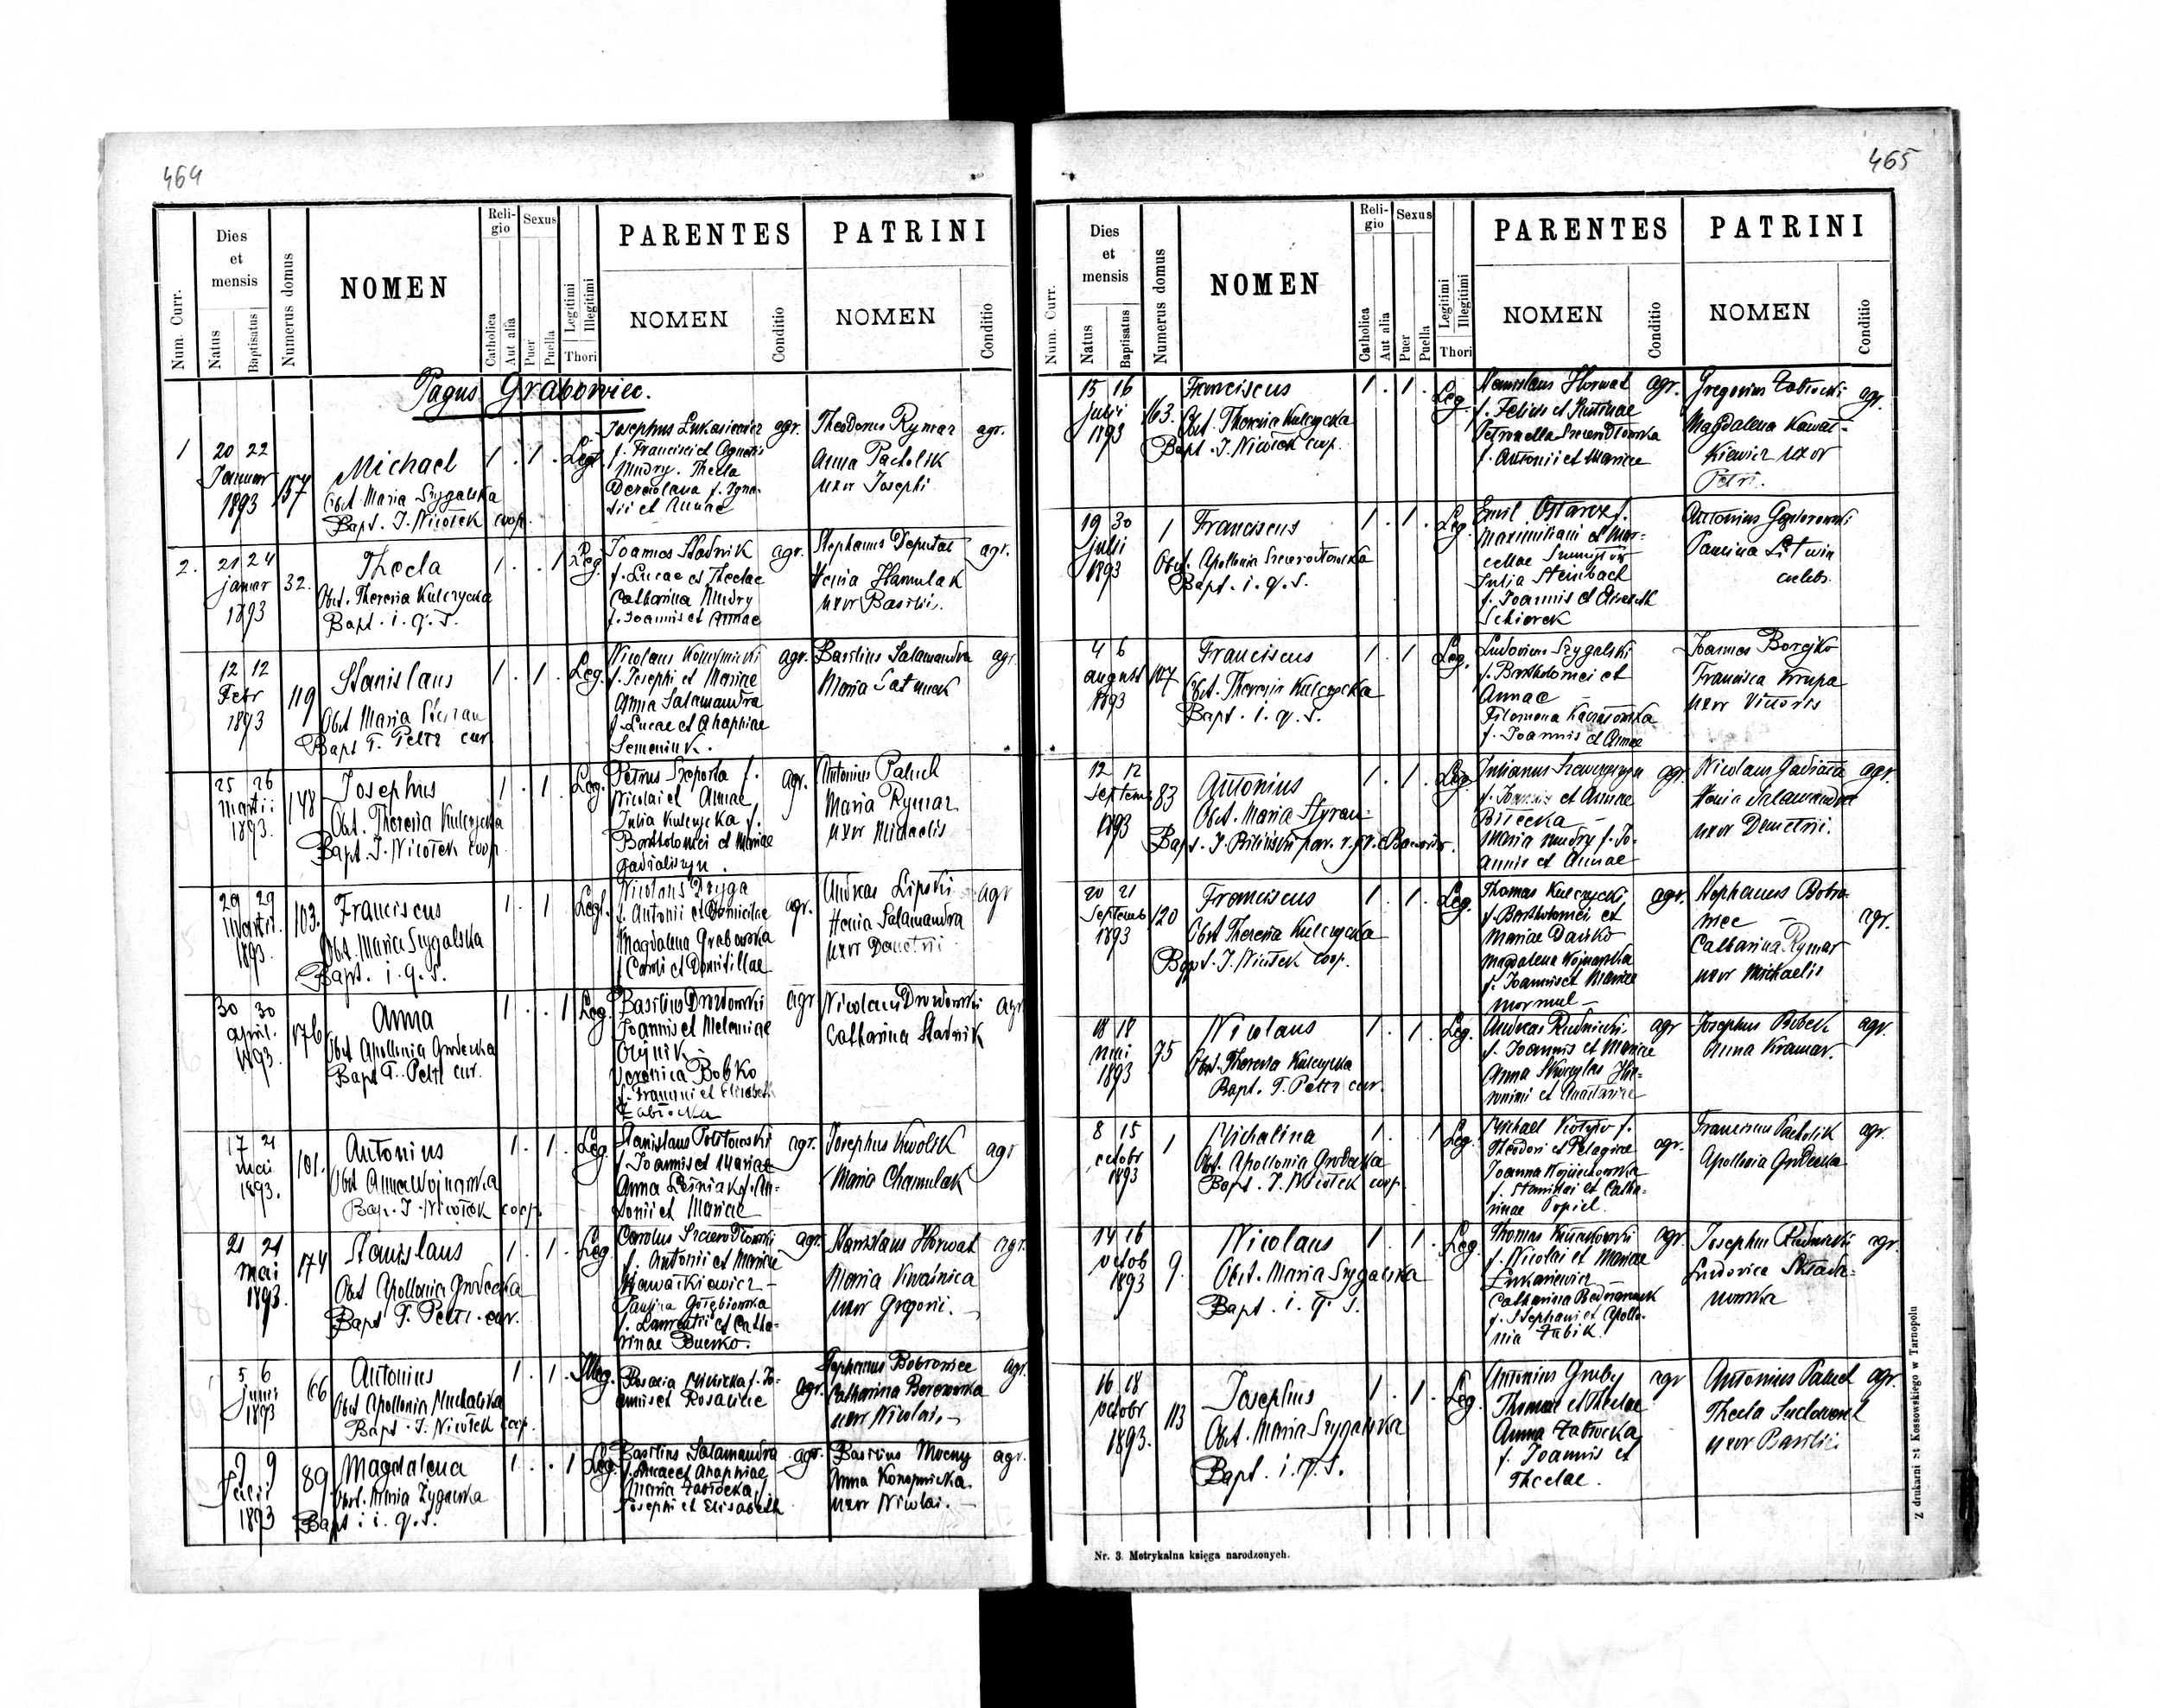 464
Num. Curr.
Dies et mensis
Natus
Baptisatus
Numerus domus
NOMEN
Religio
Catholica
Aut alia
Sexus
Puer
Puella
Legitimi
Illegitimi
Thori
PARENTES
NOMEN
Conditio
PATRINI
NOMEN
Conditio
Pagus Grabowiec.
1
20 22
Januar
1893
157
Michael
Obst. Maria Szygalska
Bapt. J. Niwołek coop.
1 . 1 . Legt.
Josephus Łukasiewicz agr.
f. Francisci et Agnetis
Mudry. Thecla
f. Igna-
tii et Annae
Theodorus Rymar agr.
Anna Pacholik
uxor Josephi
2.
21 24
januar
1893
32.
Thecla
Obst. Theresia Kulczycka
Bapt. i. q. s.
1 . . 1 Leg.
Joannes Stadnik agr.
f. Lucae et Theclae
Catharina Mudry
f. Joannis et Annae
Stephanus Deputat agr.
Henia Hamulak
uxor Basilii.
12 12
Febr
1893
119
Stanislaus
Obst Maria
Bapt T. Peltz cur.
1 . 1 . Leg.
Nicolaus agr.
f. Josephi et Mariae
Anna Salamandra
f. Lucae et Ahaphiae
Semeniuk.
Basilius Salamandra agr.
Maria
25 26
Martii
1893.
148
Josephus
Obst. Theresia Kulczycka
Bapt. J. Niwołek coop.
1 . 1 . Leg.
Petrus Szeparta f. agr.
Nicolai et Annae
Julia Kulczycka f.
Bartholomei et Mariae
Gadialszyn.
Antonius Paluch
Maria Rymar
uxor Michaelis
29 29
Martii
1893.
103.
Franciscus
Obst. Maria Szygalska
Bapt. i. q. s.
1 . 1 Legt.
Nicolaus Dzyga
f. Antonii et Domicilae agr.
Magdalena Grabowska
f. Caroli et Domitillae
Andreas Lipski agr
Henia Salamandra
uxor Demetrii
30 30
April.
1893.
176
Anna
Obst Apollonia Grodecka
Bapt T. Peltz cur.
1 . . 1 Leg.
Basilius Drozdowski agr
Joannis et Melaniae
Olijnik -
Veronica Bobko
f. Francisci et Elisabeth
Zabłocka
Nicolaus Drozdowski agr
Catharina Stadnik
17 21
Mai
1893.
101.
Antonius
Obst Anna Wojnarska
Bapt. J. Niwołek coop.
1 . 1 . Leg.
Stanislaus Politowski agr.
f. Joannis et Mariae
Anna Leśniak f. An-
tonii et Mariae
Josephus Kwolik agr
Maria Chamulak
21 21
Mai
1893.
174
Stanislaus
Obst Apollonia Grodecka
Bapt T. Peltz. cur.
1 . 1 . Leg.
Carolus Szczerodłowski agr.
f. Antonii et Mariae
Kawałkiewicz -
Paulina Gołębiowska
f. Laurentii et Catha-
rinae Buczko.
Stanislaus Horwat agr.
Maria Kwaśnica
uxor Gregorii.
5 6
junii
1893
66
Antonius
Obst Apollonia Muchalska
Bapt. J. Niwołek coop.
1 . 1 . Illeg.
Rosalia Mikicka f. Jo- agr.
annis et Rosaliae
Stephanus Bobrowiec agr.
Catharina
uxor Nicolai. -
9 9
1893
89
Magdalena
Obst. Maria Zygalska
Bapt: i. q. s.
1 . . 1 Leg.
Basilius Salamandra agr.
f. Lucae et Ahaphiae
Maria Zabłocka f.
Josephi et Elisabeth
Basilius Mocny agr.
Anna Konopnicka
uxor Nicolai. -
465
Num. Curr.
Dies et mensis
Natus
Baptisatus
Numerus domus
NOMEN
Religio
Catholica
Aut alia
Sexus
Puer
Puella
Legitimi
Illegitimi
Thori
PARENTES
NOMEN
Conditio
PATRINI
NOMEN
Conditio
15 16
julii
1893
163.
Franciscus
Obst. Theresia Kulczycka
Bapt. J. Niwołek coop.
1 . 1 . Leg.
Stanislaus Horwat agr.
f. Felicis et Justinae
Petronella Szczerodłowska
f. Antonii et Mariae
Gregorius Zabłocki agr.
Magdalena Kawał-
kiewicz uxor
Petri.
19 30
julii
1893
1
Franciscus
Obst. Apollonia Szczerodłowska
Bapt. i. q. s.
1 . 1 . Leg
Emil Ostarek f.
Maximiliani et Mar-
cellae
Julia Steinbach
f. Joannis et Elisabeth
Schiorek
Antonius
Paulina Litwin
caelebs.
4 6
august
1893
107
Franciscus
Obst. Theresia Kulczycka
Bapt. i. q. s.
1 . 1 Leg.
Ludovicus Szygalski
f. Bartholomei et
Annae
Filomena
f. Joannis et Annae
Joannes Borejko
Francisca Krupa
uxor Victoris
12 12
Septem
1893
83
Antonius
Obst. Maria Styran
Bapt. J. Biliński par. r. gr.
1 . 1 . Leg
Julianus agr.
f. Joannis et Annae
Biłecka -
Maria Mudry f. Jo-
annis et Annae
Nicolaus Gadiała agr.
Henia Salamandra
uxor Demetrii.
20 21
Septemb
1893
120
Franciscus
Obst Theresia Kulczycka
Bapt. J. Niwołek coop.
1 . 1 . Leg.
Thomas Kulczycki agr.
f. Bartholomei et
Mariae Dańko
Magdalena Wojnarska
f. Joannis et Mariae
Mormul -
Stephanus Bobro-
wiec - agr.
Catharina Rymar
uxor Michaelis
18 18
Mai
1893
75
Nicolaus
Obst. Theresia Kulczycka
Bapt. T. Peltz cur.
1 . 1 . Leg.
Andreas Rudnicki agr
f. Joannis et Mariae
Anna
Josephus Bobek agr.
Anna Kramar.
8 15
octobr
1893
1
Michalina
Obst. Apollonia Grodecka
Bapt. J. Niwołek coop.
1 . . 1 Leg.
Michael f. agr.
Theodori et Pelagiae
Joanna Wojciechowska
f. Stanislai et Catha-
rinae Popiel.
Franciscus Pacholik agr.
Apollonia Grodecka
14 16
octob
1893
9
Nicolaus
Obst. Maria Szygalska
Bapt. i. q. s.
1 . 1 . Leg.
Thomas agr.
f. Nicolai et Mariae
Łukasiewicz
Catharina Bednarczuk
f. Stephani et Apollo-
nia Zubik.
Josephus Rudnicki agr.
Ludovica Skład-
nowska
16 18
octobr
1893.
113
Josephus
Obst. Maria Szygalska
Bapt. i. q. s.
1 . 1 . Leg.
Antonius Gruby agr
Thomae et Theclae
Anna Zabłocka
f. Joannis et
Theclae.
Antonius Paluch agr.
Thecla
uxor Basilii
Nr. 3. Metrykalna księga narodzonych.
Z drukarni St Kossowskiego w Tarnopolu